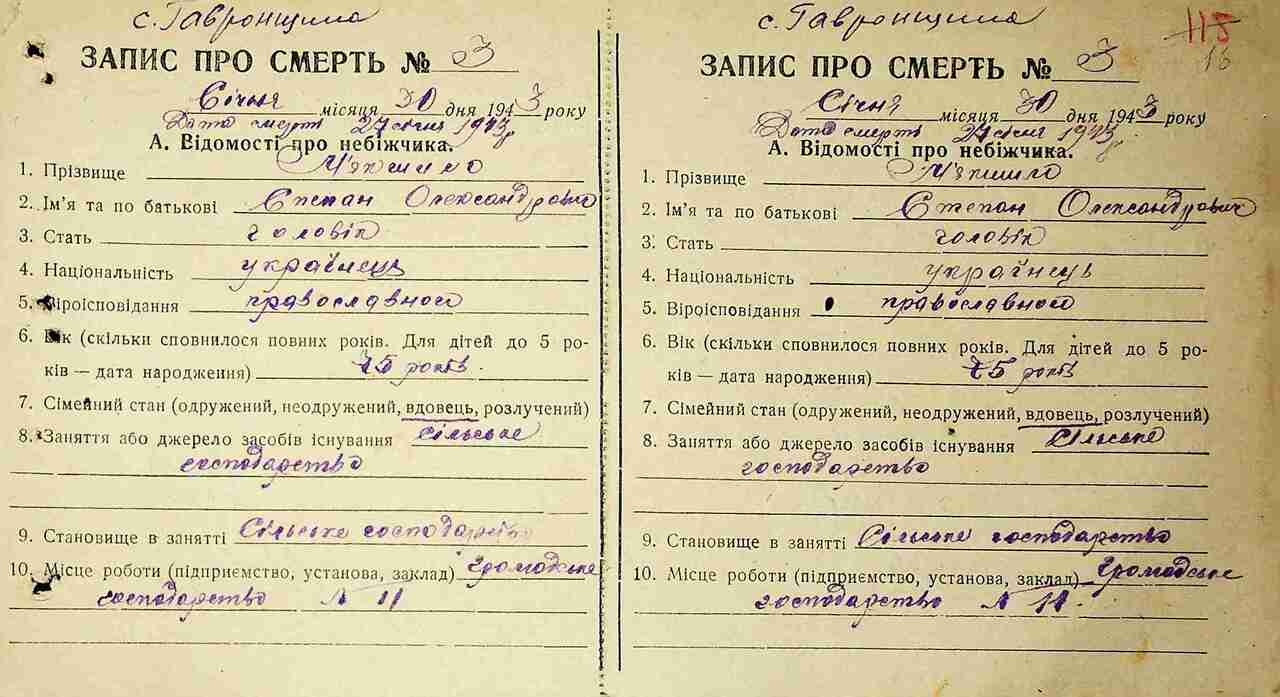 с. Гавронщина
ЗАПИС ПРО СМЕРТЬ № 3
Січня місяця 30 дня 1943 року
Дата смерть 27 січня 1943 р
А. Відомості про небіжчика.
1. Прізвище М'якшило
2. Ім'я та по батькові Степан Олександрович
3. Стать чоловік
4. Національність українець
5. Віроісповідання православного
6. Вік (скільки сповнилося повних років. Для дітей до 5 ро-
ків — дата народження) 75 років.
7. Сімейний стан (одружений, неодружений, вдовець, розлучений)
8. Заняття або джерело засобів існування Сільське
господарство
9. Становище в занятті Сільське господарство
10. Місце роботи (підприємство, установа, заклад) Громадське
господарство № 11
с. Гавронщина
115
13
ЗАПИС ПРО СМЕРТЬ № 3
Січня місяця 30 дня 1943 року
Дата смерть 27 січня 1943 р
А. Відомості про небіжчика.
1. Прізвище М'якшило
2. Ім'я та по батькові Степан Олександрович
3. Стать чоловік
4. Національність українець
5. Віроісповідання православного
6. Вік (скільки сповнилося повних років. Для дітей до 5 ро-
ків — дата народження) 75 років
7. Сімейний стан (одружений, неодружений, вдовець, розлучений)
8. Заняття або джерело засобів існування Сільське
господарство
9. Становище в занятті Сільське господарство
10. Місце роботи (підприємство, установа, заклад) Громадське
господарство № 11.